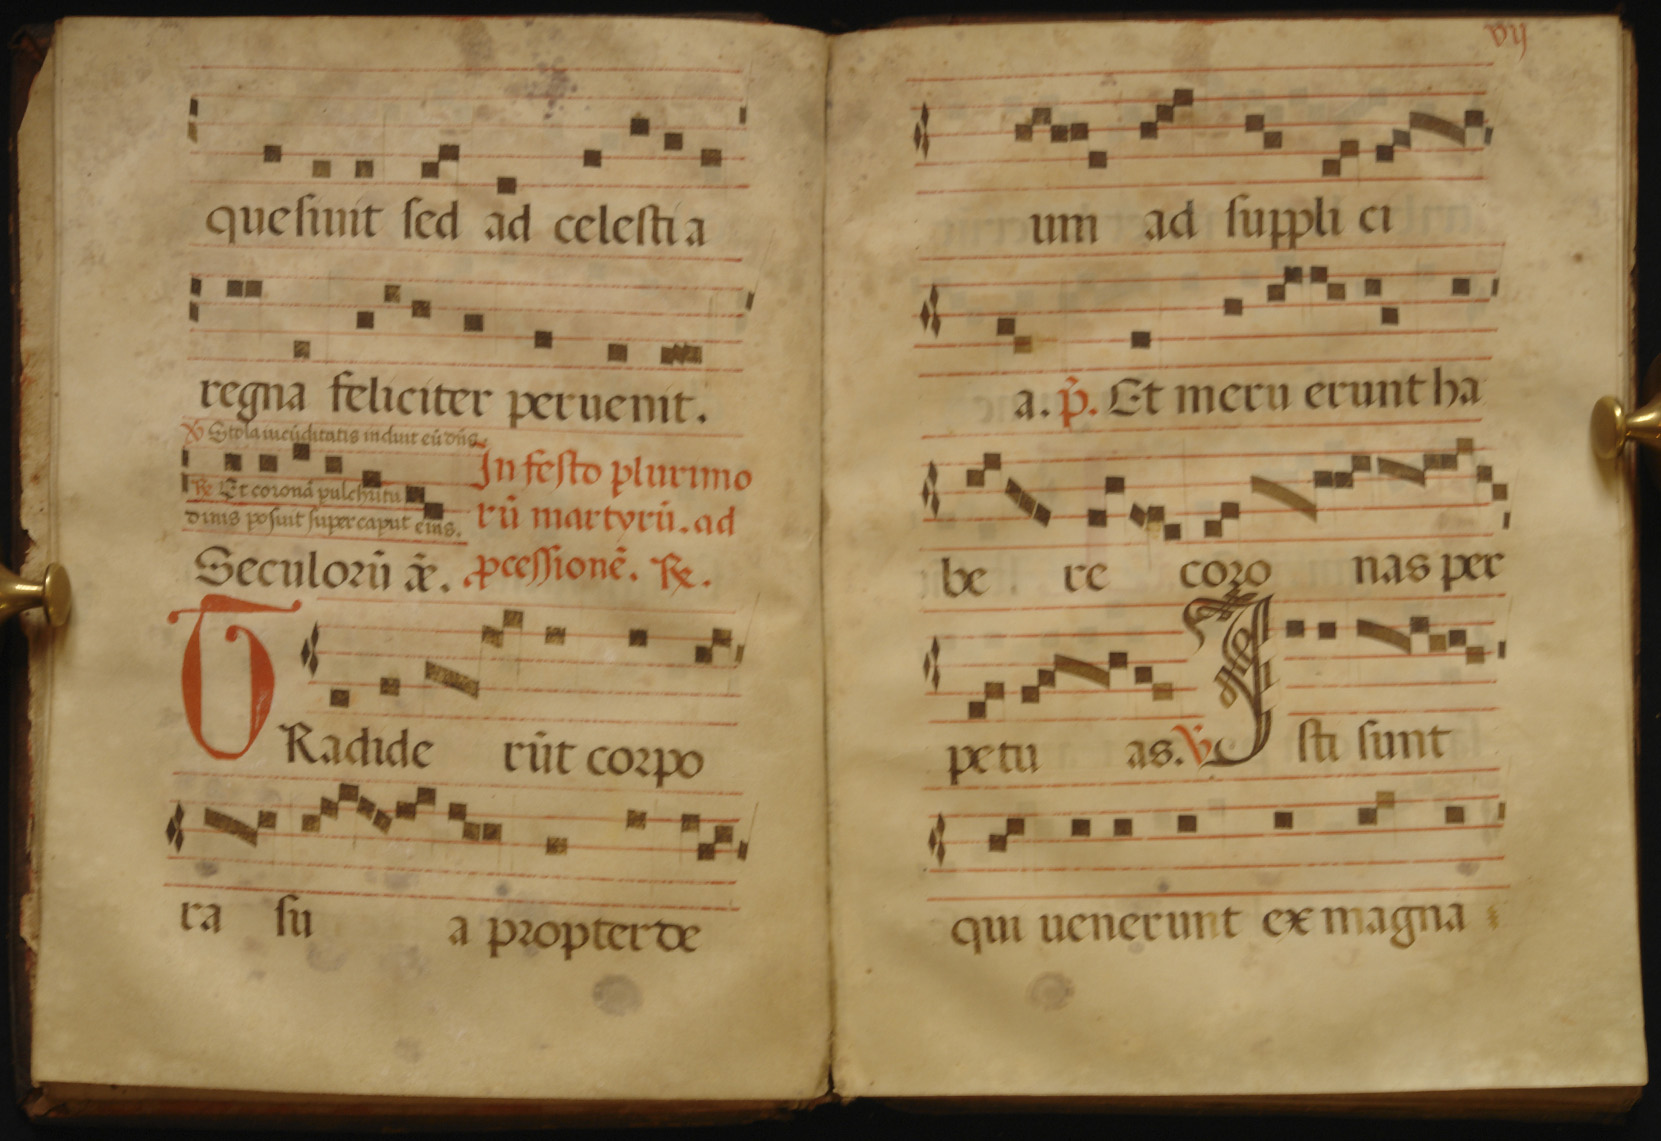 quesiuit sed ad celestia
regna feliciter peruenit.
℣ Stola iucūditatis induit eū dn̄s.
℟ Et coronā pulchritu
dinis posuit super caput eius.
In festo plurimo
rū martyrū. ad
ꝓcessionē. ℟.
Seculorū am̄.
TRadide rūt corpo
ra su a propter de
vij
um ad suppli ci
a. p̄. Et meru erunt ha
be re coro nas per
petu as. ℣ Isti sunt
qui uenerunt ex magna